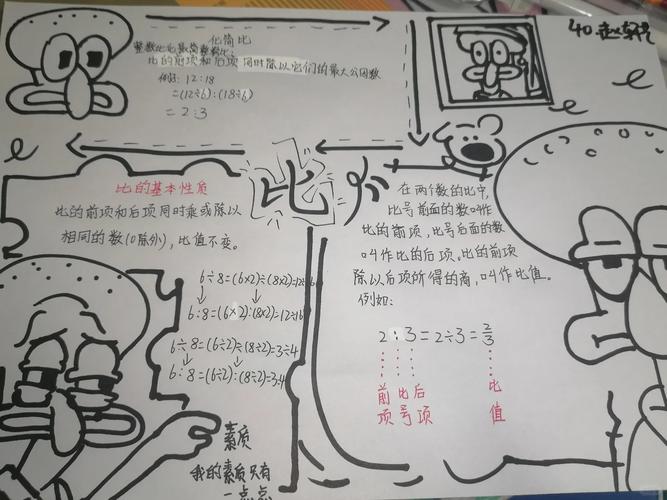 化简比
整数比化最简整数比:
比的前项和后项同时除以它们的最大公因数
例如: 12:18
=(12÷6):(18÷6)
=2:3
40
比
比的基本性质
比的前项和后项同时乘或除以
相同的数(0除外),比值不变。
6÷8=(6×2)÷(8×2)=12÷16
6:8=(6×2):(8×2)=12÷16
6÷8=(6÷2)÷(8÷2)=3÷4
6:8=(6÷2):(8÷2)=3:4
在两个数的比中,
比号前面的数叫作
比的前项,比号后面的数
叫作比的后项。比的前项
除以后项所得的商,叫作比值。
例如:
2:3=2÷3=2/3
前比后 比
项号项 值
素质
我的素质只有
一点点